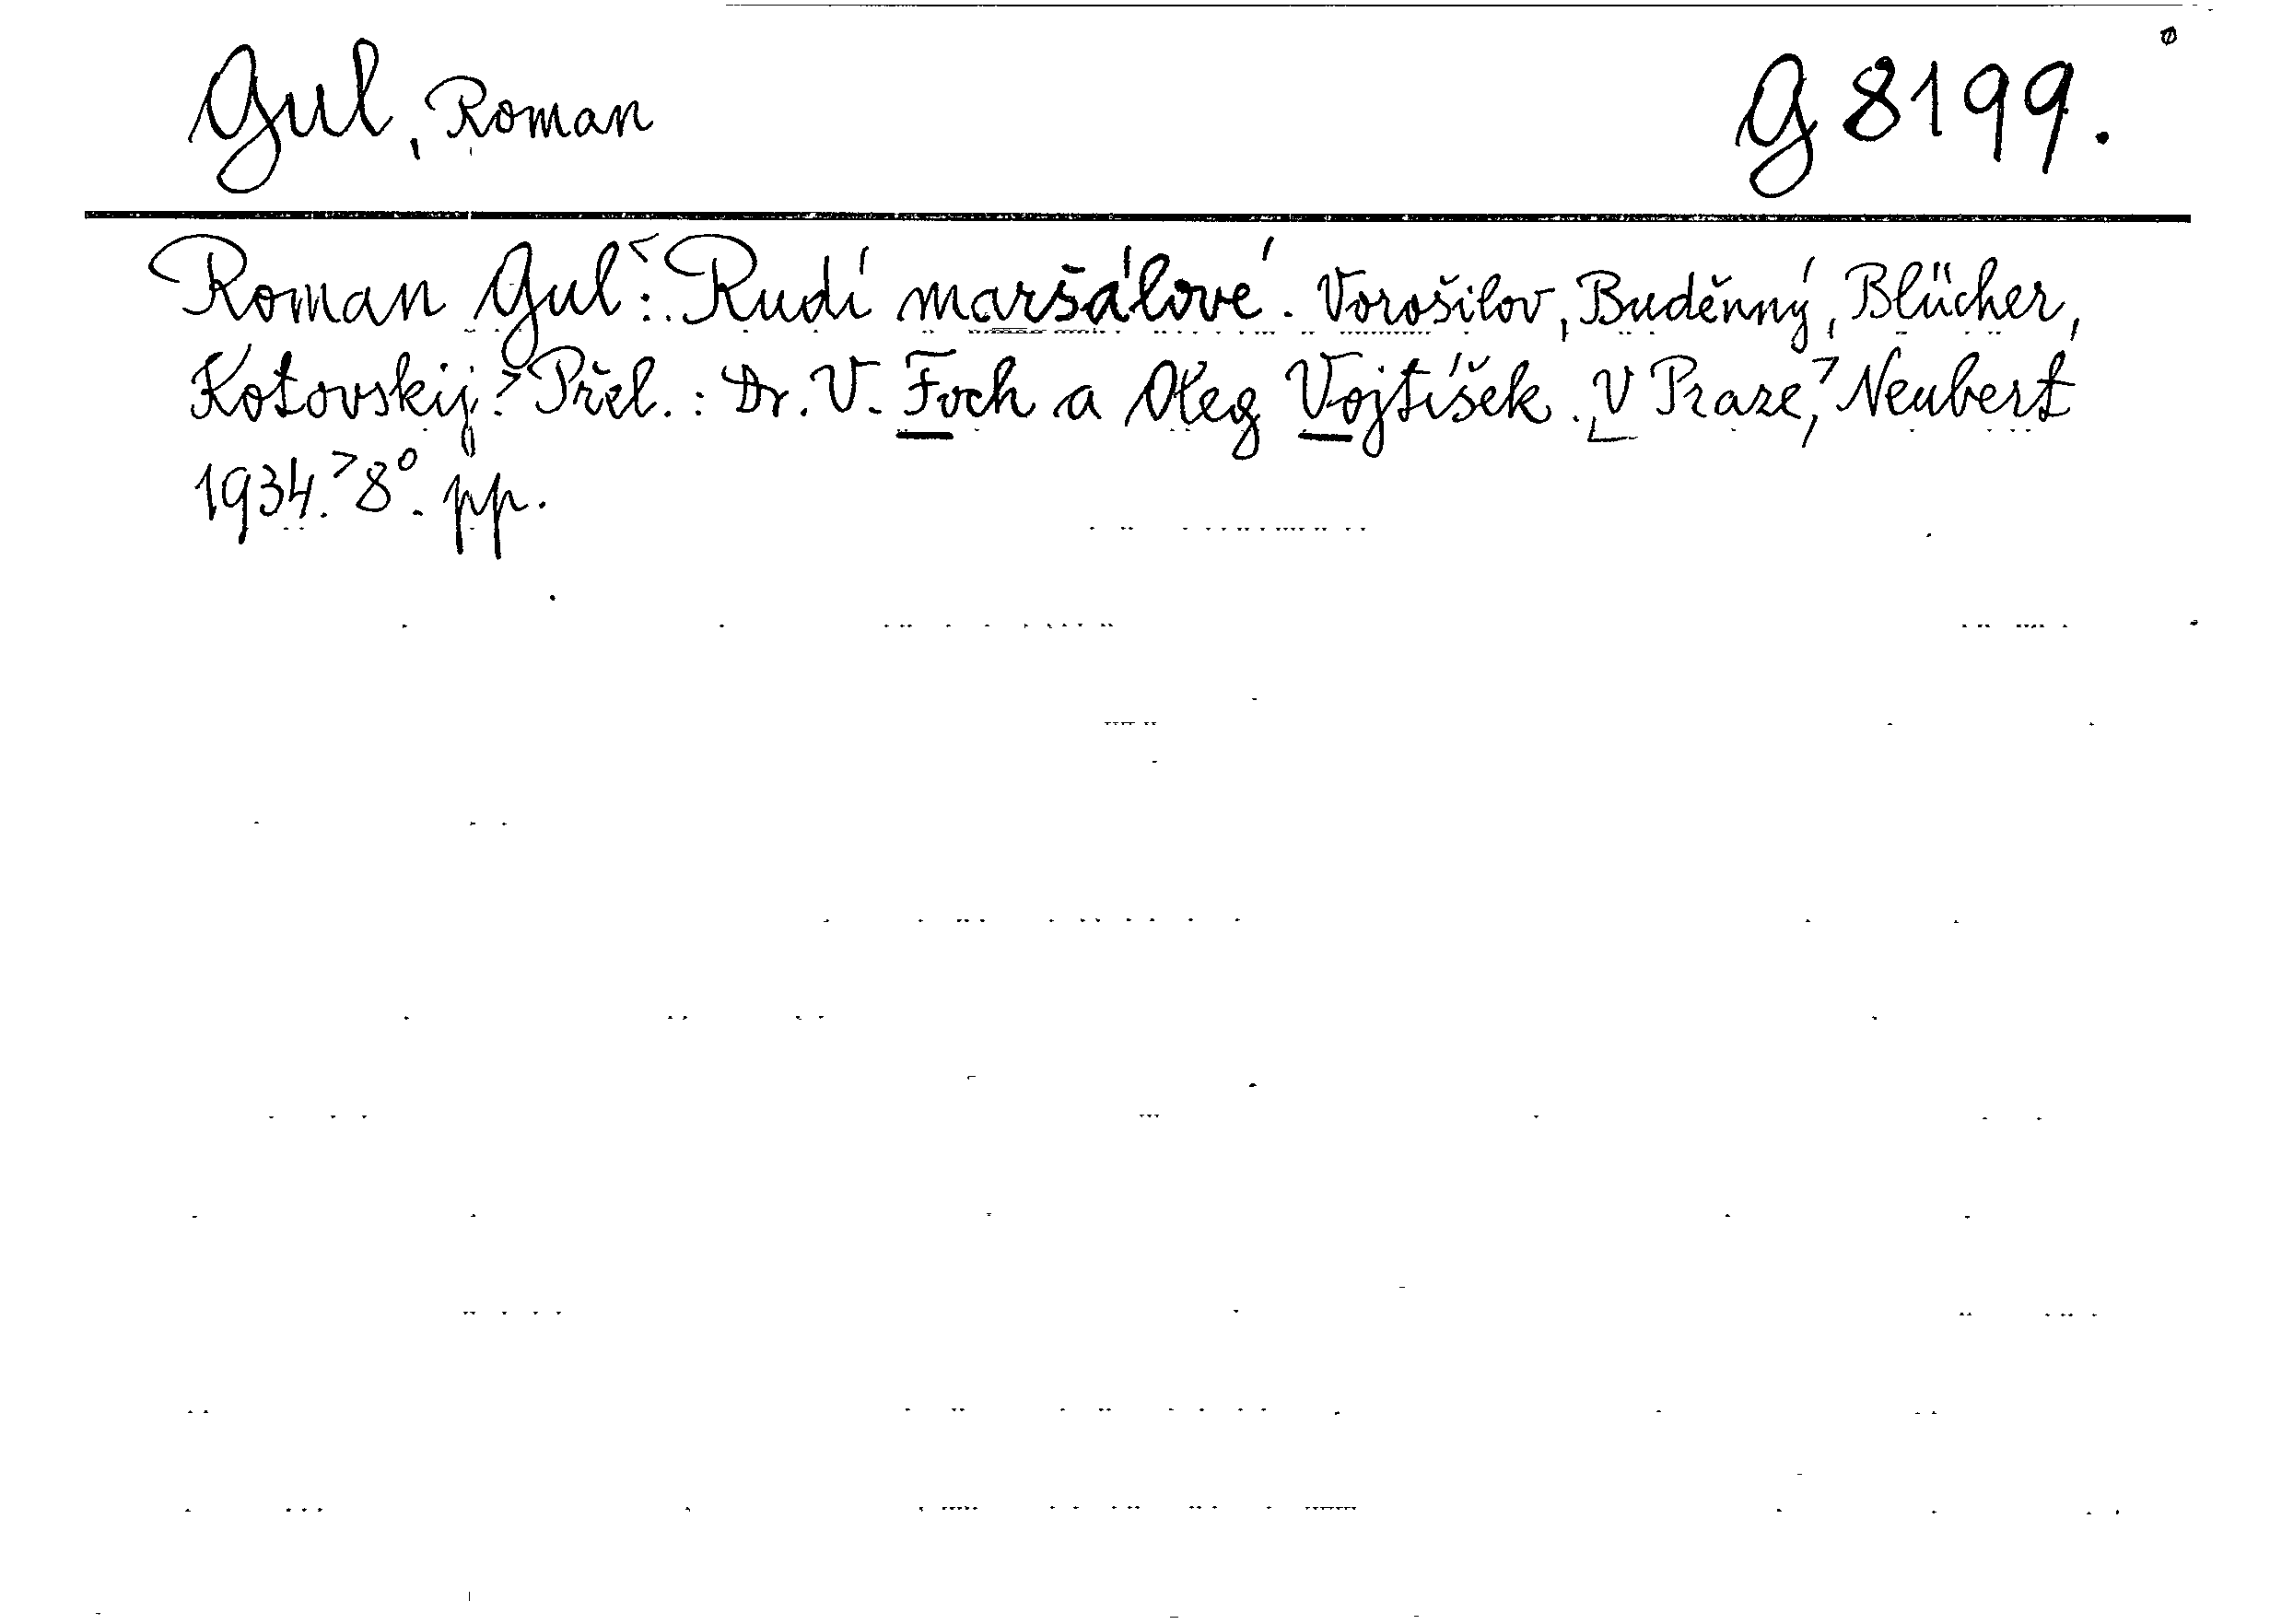 Gul, Roman
G 8199.
Roman Gul: Rudí maršálové. Vorošilov, Buděnný, Blücher,
Kotovskij. Přel.: Dr. V. Foch a Oleg Vojtíšek. V Praze, Neubert
1934. 8°. pp.